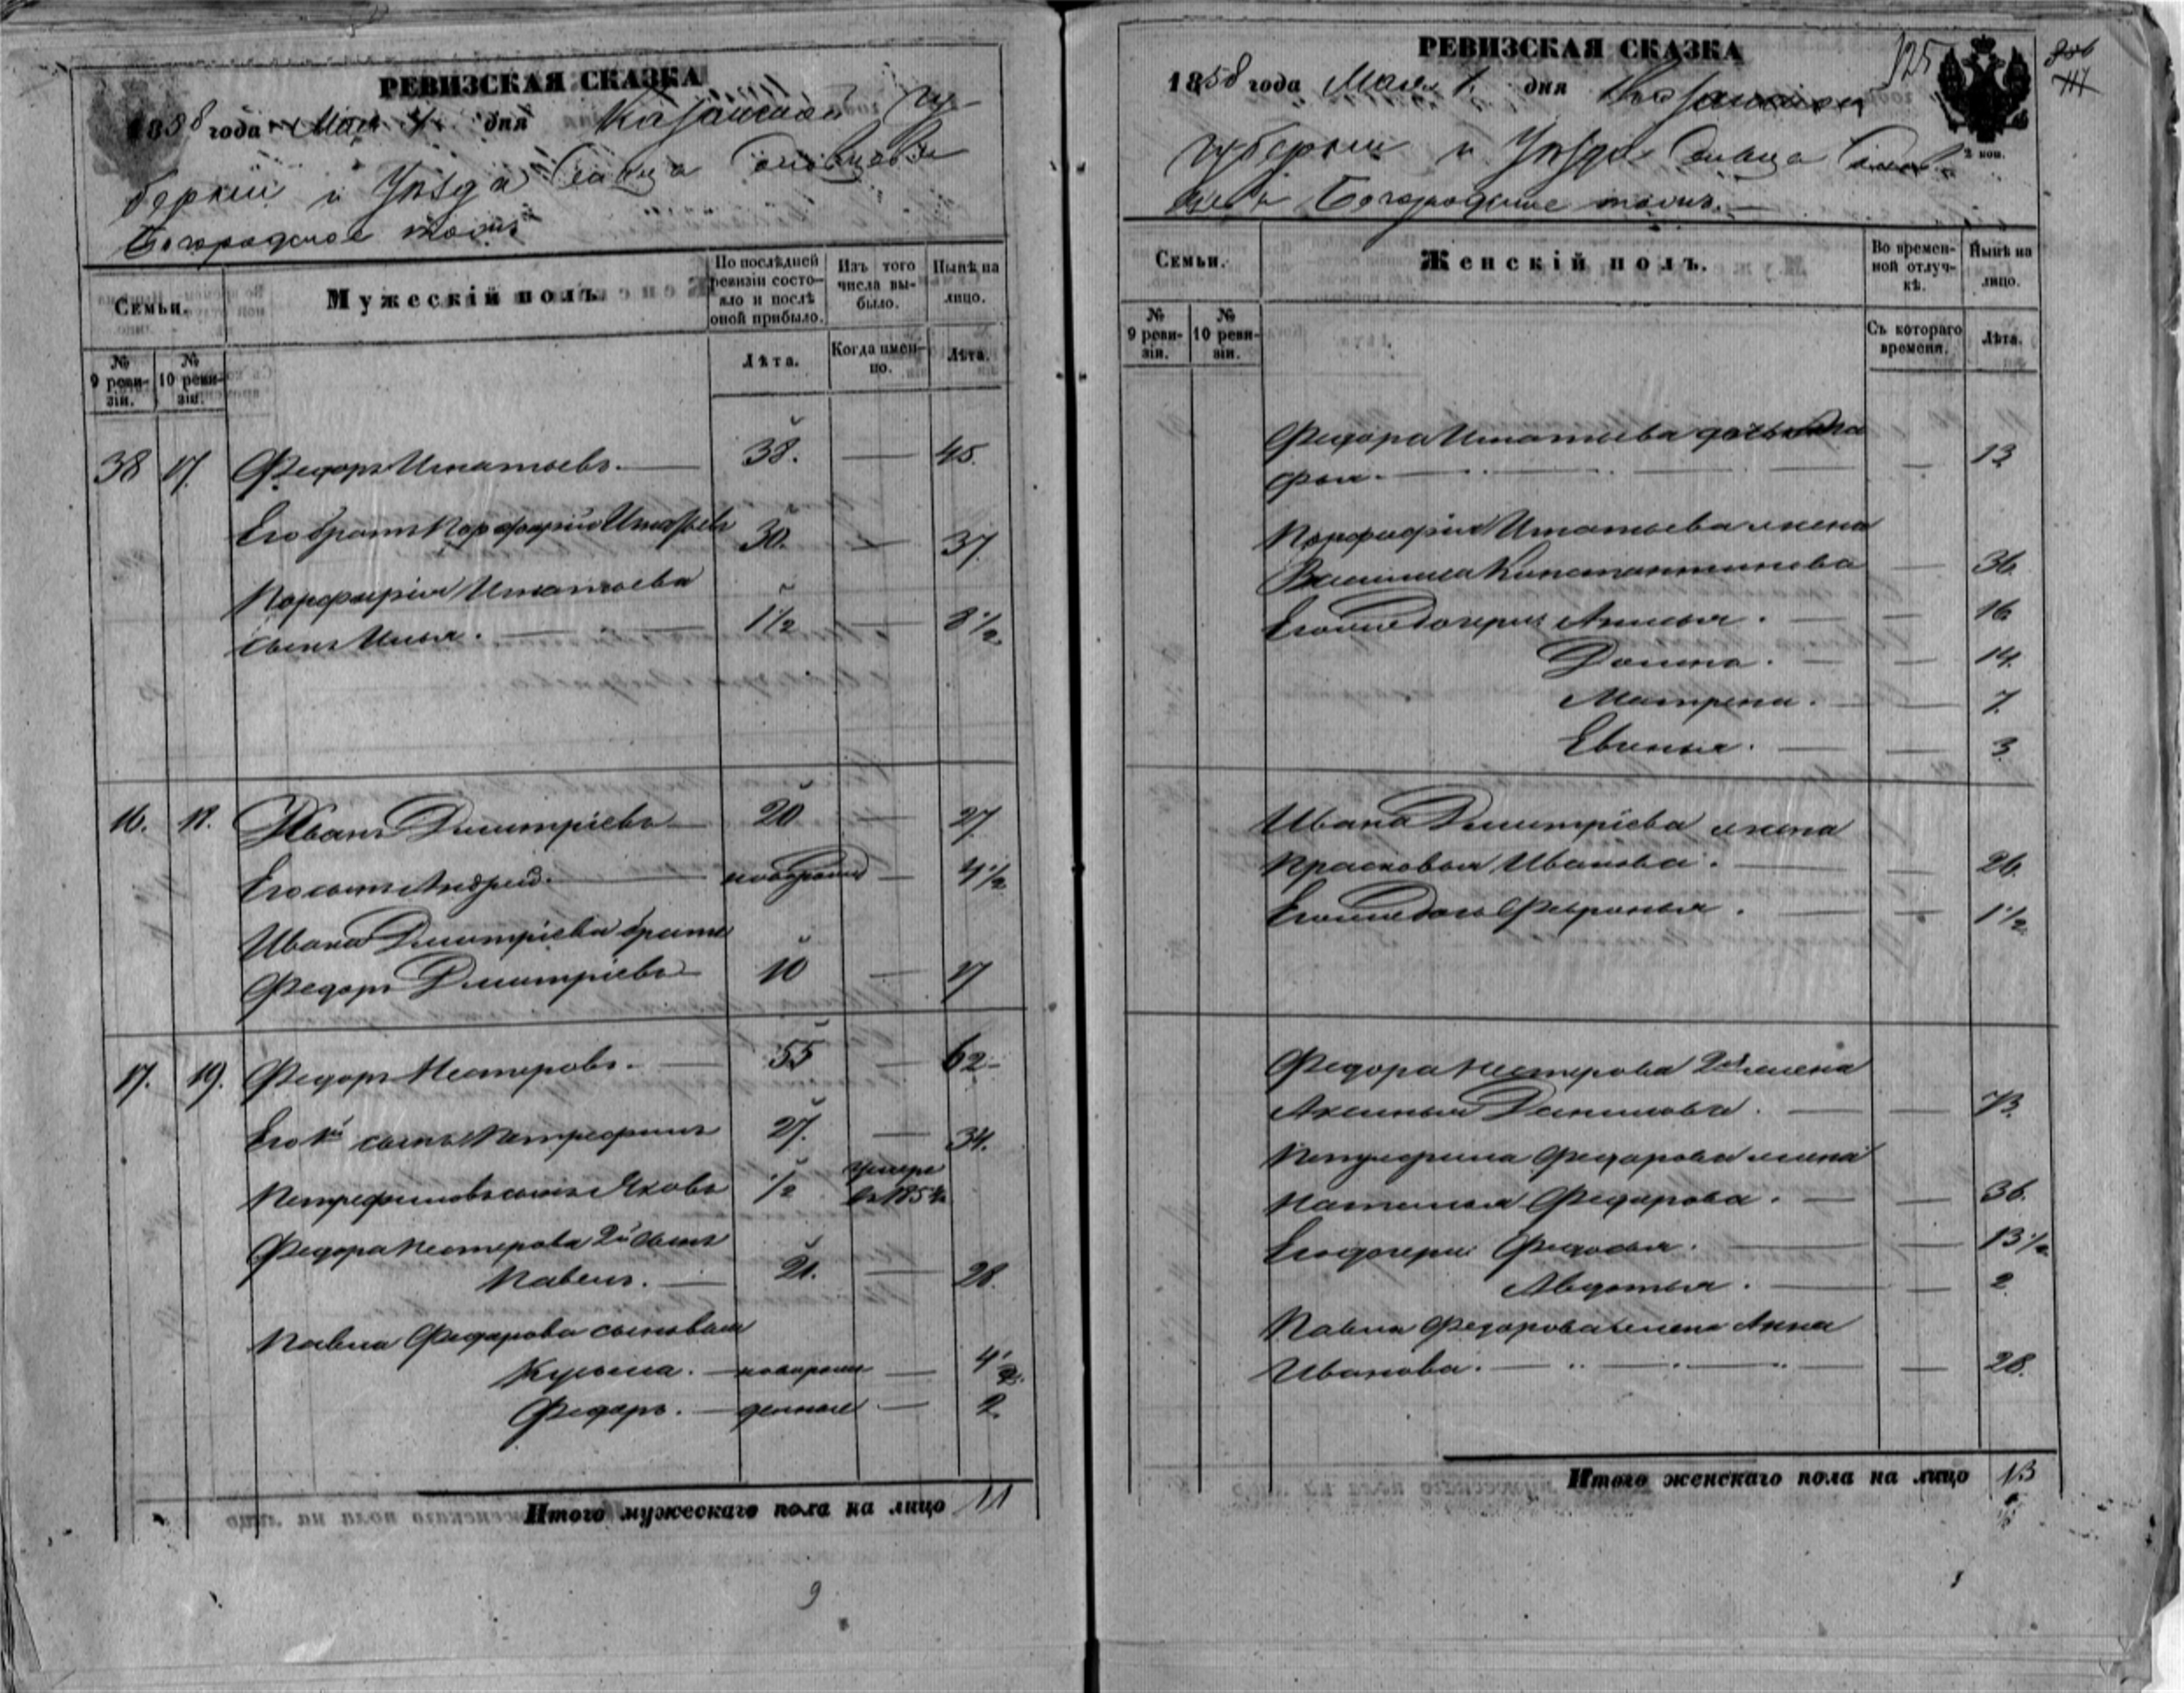 РЕВИЗСКАЯ СКАЗКА
1858 года Мая 1 дня Казанской Гу-
берніи и Уѣзда Сельца
Богородское тожъ
Семьи.
Мужескій полъ.
По послѣдней ревизіи состояло и послѣ оной прибыло.
Изъ того числа выбыло.
Нынѣ на лицо.
№ 9 ревизіи.
№ 10 ревизіи.
Лѣта.
Когда именно.
Лѣта.
38 17. Федоръ Игнатьевъ. 38. 45.
Его братъ Порфирій Игнатьевъ 30. 37.
Порфирія Игнатьева
сынъ Илья. 1 1/2 8 1/2
16. 18. Иванъ Дмитріевъ 20 27
Его сынъ Андрей. новорожд 4 1/2
Ивана Дмитріева братъ
Федоръ Дмитріевъ 10 17
17. 19. Федоръ Нестеровъ. 55 62
Его 1й сынъ 27. 34.
сынъ Яковъ 1/2 умеръ
въ 185
Федора Нестерова 2й сынъ
Павелъ. 21. 28.
Павла Федорова сыновья
Кузьма. новорож 4 1/2
Федоръ. денные 2.
Итого мужескаго пола на лицо 11
9
РЕВИЗСКАЯ СКАЗКА
125
1858 года Мая 1 дня Казанской
2 коп.
губерніи и Уѣзда Сельца
Богородское тожъ.
Семьи.
Женскій полъ.
Во временной отлучкѣ.
Нынѣ на лицо.
№ 9 ревизіи.
№ 10 ревизіи.
Съ котораго времени.
Лѣта.
Федора Игнатьева дочь
13
Порфирія Игнатьева жена
Василиса Константинова 36
Его же дочери Анисья. 16
Домна. 14.
Матрена. 7.
3
Ивана Дмитріева жена
Прасковья Иванова. 26.
Его же дочь Февронья. 1 1/2
Федора Нестерова 2я жена
Аксинья Данилова.
Федорова жена
Наталья Федорова. 36.
Его дочери Федосья. 13 1/2
Авдотья. 2
Павла Федорова жена Анна
Иванова. 28.
Итого женскаго пола на лицо 13